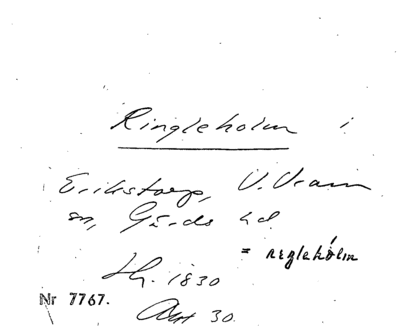 Ringleholm
Erikstorp, V. Vram
sn, Gärds hd.
= regleholm
Lh. 1830
Nr 7767.
Akt 30.